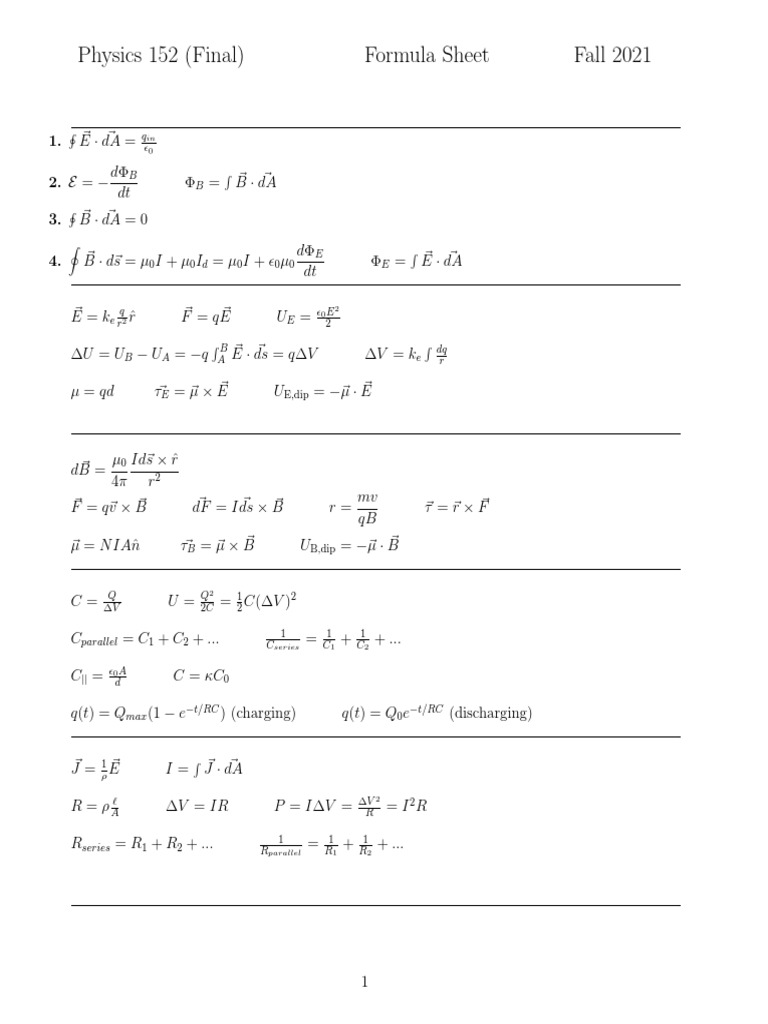 Physics 152 (Final) Formula Sheet Fall 2021
1. ∮ E⃗ · dA⃗ = q_in/ϵ₀
2. ℰ = −dΦ_B/dt Φ_B = ∫ B⃗ · dA⃗
3. ∮ B⃗ · dA⃗ = 0
4. ∮ B⃗ · ds⃗ = μ₀I + μ₀I_d = μ₀I + ϵ₀μ₀ dΦ_E/dt Φ_E = ∫ E⃗ · dA⃗
E⃗ = k_e q/r² r̂ F⃗ = qE⃗ U_E = ϵ₀E²/2
ΔU = U_B − U_A = −q ∫_A^B E⃗ · ds⃗ = qΔV ΔV = k_e ∫ dq/r
μ = qd τ⃗_E = μ⃗ × E⃗ U_E,dip = −μ⃗ · E⃗
dB⃗ = μ₀/4π Ids⃗ × r̂/r²
F⃗ = qv⃗ × B⃗ dF⃗ = Ids⃗ × B⃗ r = mv/qB τ⃗ = r⃗ × F⃗
μ⃗ = NIAn̂ τ⃗_B = μ⃗ × B⃗ U_B,dip = −μ⃗ · B⃗
C = Q/ΔV U = Q²/2C = ½C(ΔV)²
C_parallel = C₁ + C₂ + ... 1/C_series = 1/C₁ + 1/C₂ + ...
C_|| = ϵ₀A/d C = κC₀
q(t) = Q_max(1 − e^(−t/RC)) (charging) q(t) = Q₀e^(−t/RC) (discharging)
J⃗ = 1/ρ E⃗ I = ∫ J⃗ · dA⃗
R = ρ ℓ/A ΔV = IR P = IΔV = ΔV²/R = I²R
R_series = R₁ + R₂ + ... 1/R_parallel = 1/R₁ + 1/R₂ + ...
1